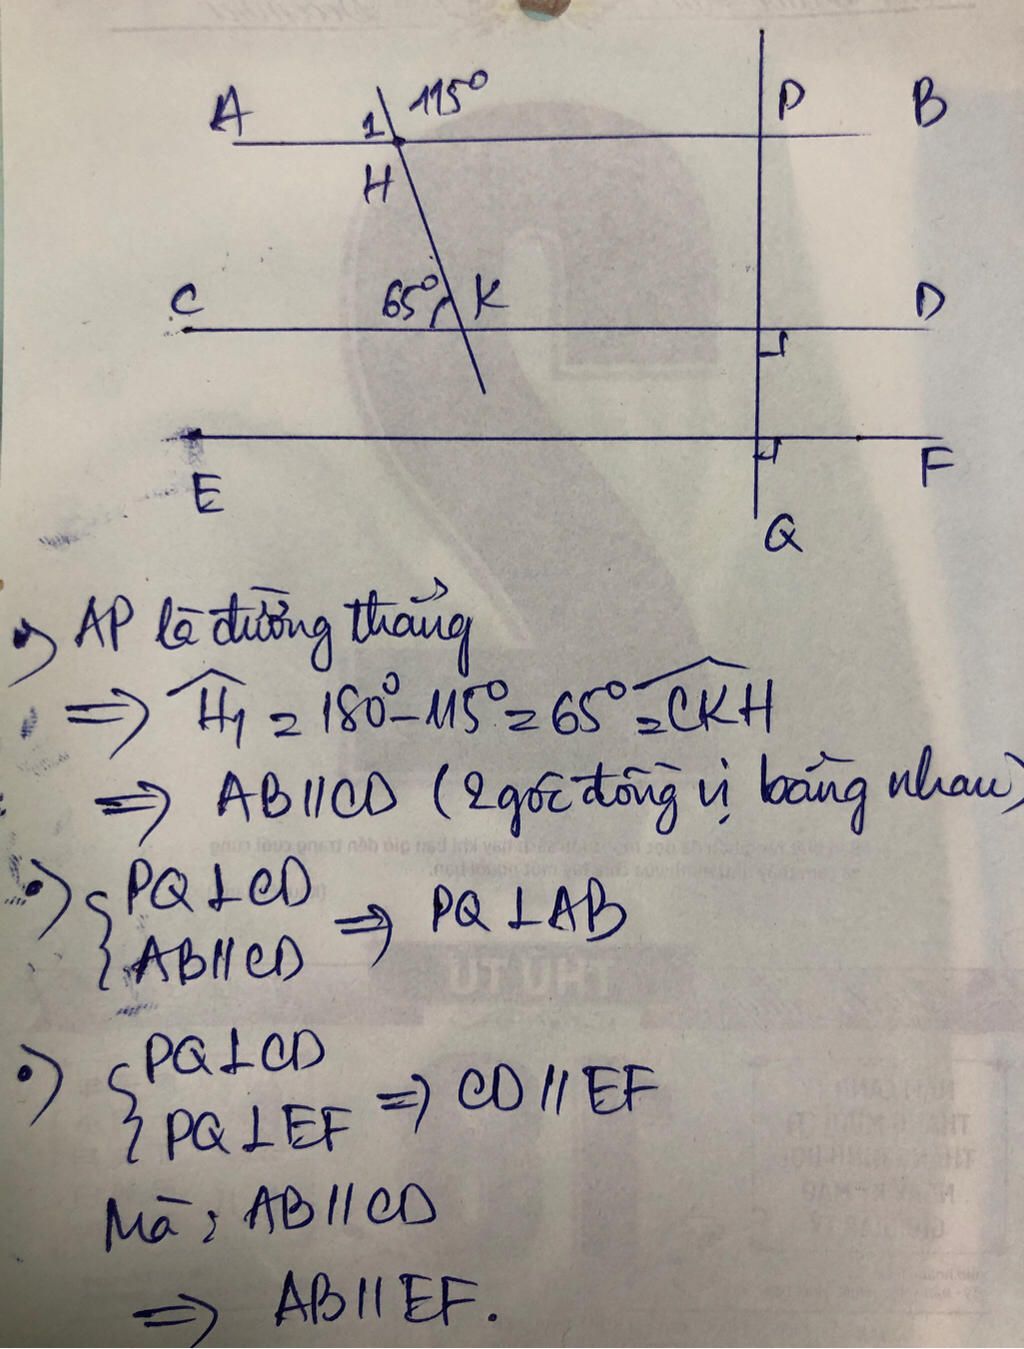 A 1 115° P B
H
C 65° K D
E F
Q
•) AP là đường thẳng
=> Ĥ₁ = 180° - 115° = 65° = CKH
=> AB // CD (2 góc đồng vị bằng nhau)
•) { PQ ⊥ CD
AB // CD => PQ ⊥ AB
•) { PQ ⊥ CD
PQ ⊥ EF => CD // EF
Mà: AB // CD
=> AB // EF.